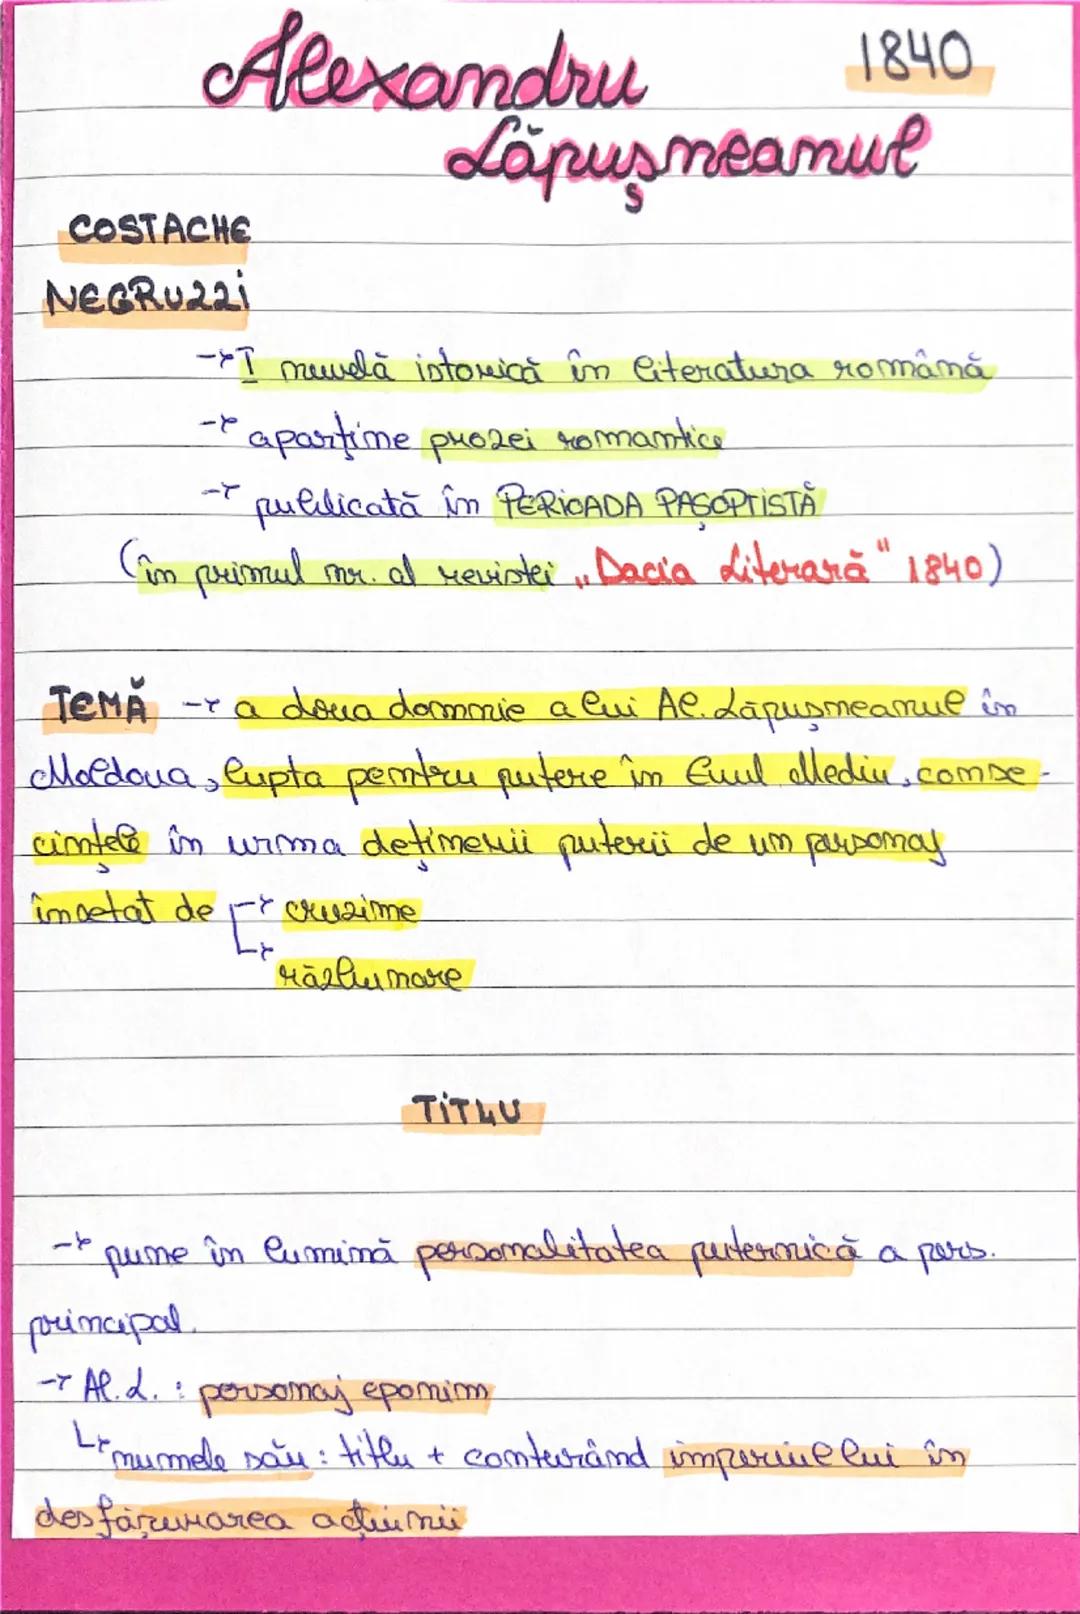 Alexandru 1840
Lăpușneanul
COSTACHE
NEGRUZZI
→ I nuvelă istorică în literatura română
→ aparține prozei romantice
→ publicată în PERIOADA PAȘOPTISTĂ
(în primul nr. al revistei „Dacia Literară" 1840)
TEMĂ → a doua domnie a lui Al. Lăpușneanul în
Moldova, lupta pentru putere în Evul Mediu, conse-
cințele în urma deținerii puterii de un personaj
însetat de → cruzime
→ răzbunare
TITLU
→ pune în lumină personalitatea puternică a pers.
principal.
→ Al. L. : personaj eponim
↳ numele său : titlu + conturând imperiul lui în
desfășurarea acțiunii